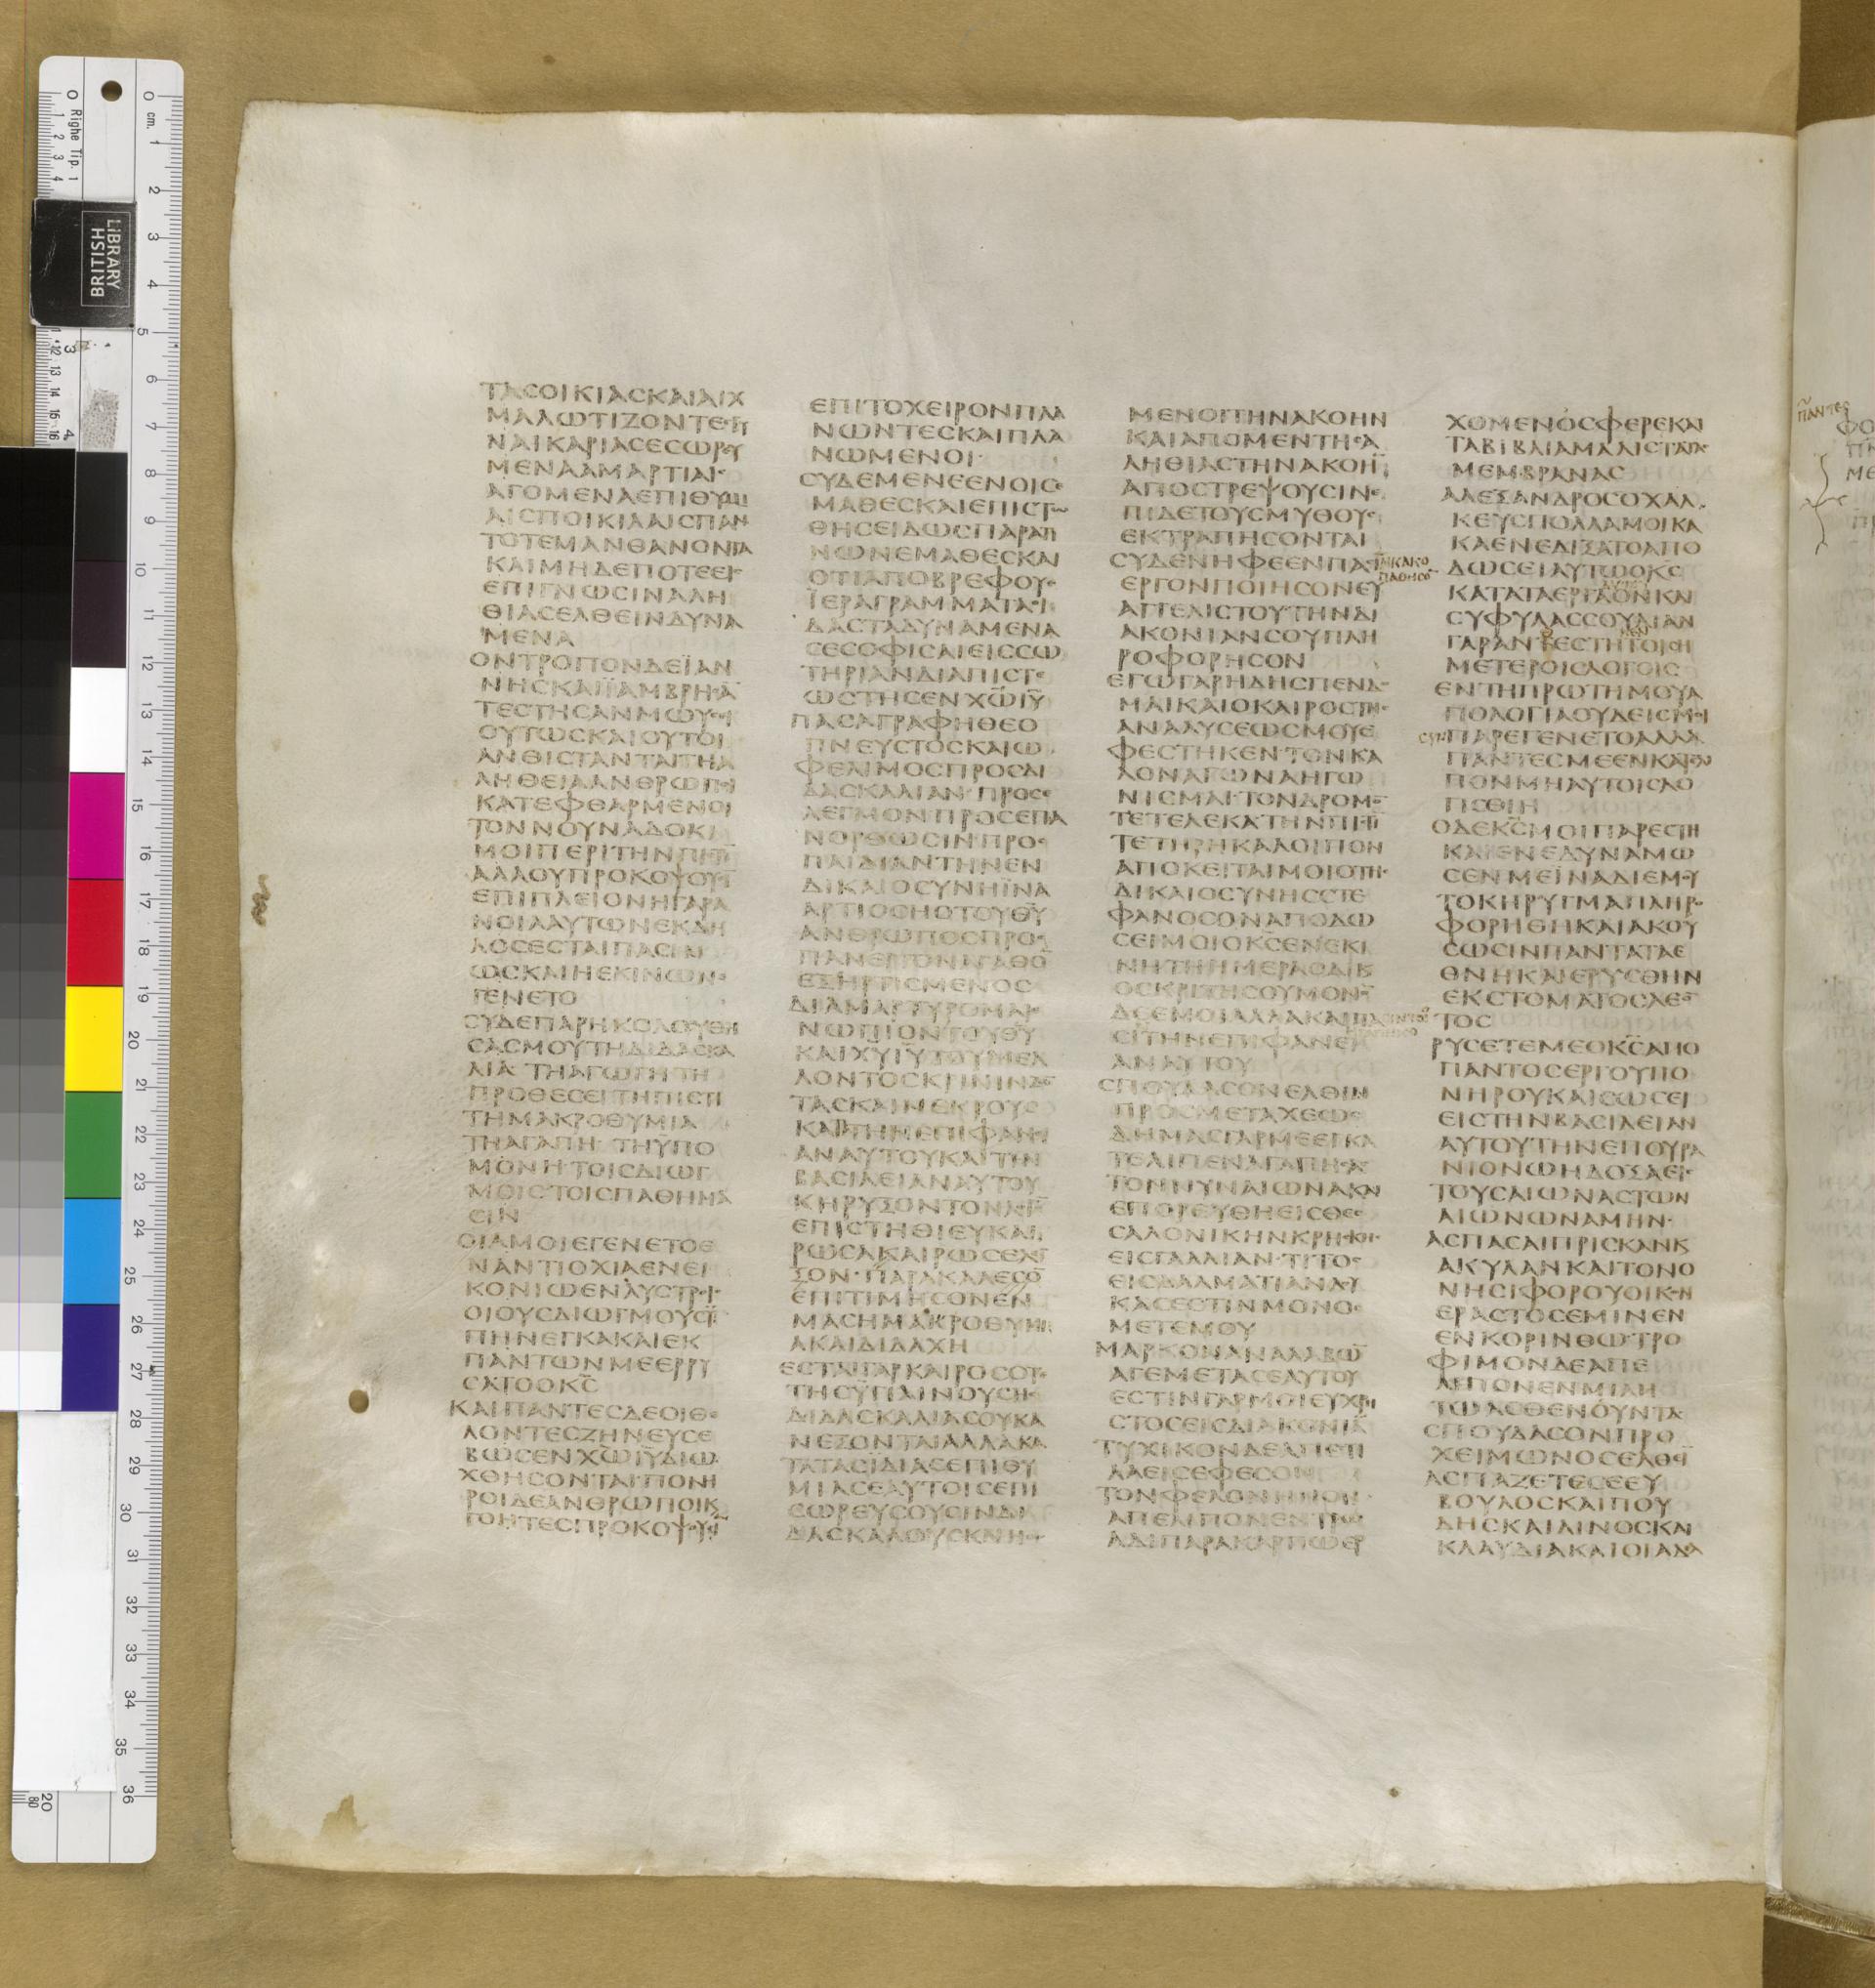 ΤΑΣΟΙΚΙΑΣΚΑΙΑΙΧ
ΜΑΛΩΤΙΖΟΝΤΕΣΓΥ
ΝΑΙΚΑΡΙΑΣΕΣΩΡΕΥ
ΜΕΝΑΑΜΑΡΤΙΑΙΣ
ΑΓΟΜΕΝΑΕΠΙΘΥΜΙ
ΑΙΣΠΟΙΚΙΛΑΙΣΠΑΝ
ΤΟΤΕΜΑΝΘΑΝΟΝΤΑ
ΚΑΙΜΗΔΕΠΟΤΕΕΙΣ
ΕΠΙΓΝΩΣΙΝΑΛΗ
ΘΙΑΣΕΛΘΕΙΝΔΥΝΑ
ΜΕΝΑ
ΟΝΤΡΟΠΟΝΔΕΪΑΝ
ΝΗΣΚΑΙΪΑΜΒΡΗΣΑ̅
ΤΕΣΤΗΣΑΝΜΩΥΣΙ
ΟΥΤΩΣΚΑΙΟΥΤΟΙ
ΑΝΘΙΣΤΑΝΤΑΙΤΗΑ
ΛΗΘΕΙΑΑΝΘΡΩΠΟΙ
ΚΑΤΕΦΘΑΡΜΕΝΟΙ
ΤΟΝΝΟΥΝΑΔΟΚΙ
ΜΟΙΠΕΡΙΤΗΝΠΙΣΤΙ̅
ΑΛΛΟΥΠΡΟΚΟΨΟΥΣΙ̅
ΕΠΙΠΛΕΙΟΝΗΓΑΡΑ
ΝΟΙΑΑΥΤΩΝΕΚΔΗ
ΛΟΣΕΣΤΑΙΠΑΣΙΝ
ΩΣΚΑΙΗΕΚΙΝΩΝΕ
ΓΕΝΕΤΟ
ΣΥΔΕΠΑΡΗΚΟΛΟΥΘΗ
ΣΑΣΜΟΥΤΗΔΙΔΑΣΚΑ
ΛΙΑ·ΤΗΑΓΩΓΗΤΗ
ΠΡΟΘΕΣΕΙΤΗΠΙΣΤΙ
ΤΗΜΑΚΡΟΘΥΜΙΑ
ΤΗΑΓΑΠΗ·ΤΗΫΠΟ
ΜΟΝΗΤΟΙΣΔΙΩΓ
ΜΟΙΣΤΟΙΣΠΑΘΗΜΑ
ΣΙΝ
ΟΙΑΜΟΙΕΓΕΝΕΤΟΕ
ΝΑΝΤΙΟΧΙΑΕΝΕΙ
ΚΟΝΙΩΕΝΛΥΣΤΡΟΙΣ
ΟΙΟΥΣΔΙΩΓΜΟΥΣΫ
ΠΗΝΕΓΚΑΚΑΙΕΚ
ΠΑΝΤΩΝΜΕΕΡΡΥ
ΣΑΤΟΟΚ̅Σ̅
ΚΑΙΠΑΝΤΕΣΔΕΟΙΘΕ
ΛΟΝΤΕΣΖΗΝΕΥΣΕ
ΒΩΣΕΝΧ̅Ω̅Ι̅Υ̅ΔΙΩ
ΧΘΗΣΟΝΤΑΙΠΟΝΗ
ΡΟΙΔΕΑΝΘΡΩΠΟΙΚ
ΓΟΗΤΕΣΠΡΟΚΟΨΟΥΣΙ̅
ΕΠΙΤΟΧΕΙΡΟΝΠΛΑ
ΝΩΝΤΕΣΚΑΙΠΛΑ
ΝΩΜΕΝΟΙ
ΣΥΔΕΜΕΝΕΕΝΟΙΣΕ
ΜΑΘΕΣΚΑΙΕΠΙΣΤΩ
ΘΗΣΕΙΔΩΣΠΑΡΑΤΙ
ΝΩΝΕΜΑΘΕΣΚΑΙ
ΟΤΙΑΠΟΒΡΕΦΟΥΣ
ΪΕΡΑΓΡΑΜΜΑΤΑΟΙ
ΔΑΣΤΑΔΥΝΑΜΕΝΑ
ΣΕΣΟΦΙΣΑΙΕΙΣΣΩ
ΤΗΡΙΑΝΔΙΑΠΙΣΤΕ
ΩΣΤΗΣΕΝΧ̅Ω̅Ι̅Υ̅
ΠΑΣΑΓΡΑΦΗΘΕΟ
ΠΝΕΥΣΤΟΣΚΑΙΩ
ΦΕΛΙΜΟΣΠΡΟΣΔΙ
ΔΑΣΚΑΛΙΑΝ·ΠΡΟΣΕ
ΛΕΓΜΟΝΠΡΟΣΕΠΑ
ΝΟΡΘΩΣΙΝΠΡΟΣ
ΠΑΙΔΙΑΝΤΗΝΕΝ
ΔΙΚΑΙΟΣΥΝΗΪΝΑ
ΑΡΤΙΟΣΗΟΤΟΥΘ̅Υ̅
ΑΝΘΡΩΠΟΣΠΡΟΣ
ΠΑΝΕΡΓΟΝΑΓΑΘΟ̅
ΕΞΗΡΤΙΣΜΕΝΟΣ
ΔΙΑΜΑΡΤΥΡΟΜΑΙΕ
ΝΩΠΙΟΝΤΟΥΘ̅Υ̅
ΚΑΙΧ̅Υ̅Ι̅Υ̅ΤΟΥΜΕΛ
ΛΟΝΤΟΣΚΡΙΝΙΝΖΩ̅
ΤΑΣΚΑΙΝΕΚΡΟΥΣ
ΚΑΙΤΗΝΕΠΙΦΑΝΙ
ΑΝΑΥΤΟΥΚΑΙΤΗΝ
ΒΑΣΙΛΕΙΑΝΑΥΤΟΥ
ΚΗΡΥΞΟΝΤΟΝΛΟΓΟ̅
ΕΠΙΣΤΗΘΙΕΥΚΑΙ
ΡΩΣΑΚΑΙΡΩΣΕΛΕΓ
ΞΟΝ·ΠΑΡΑΚΑΛΕΣΟ̅
ΕΠΙΤΙΜΗΣΟΝΕΝ
ΠΑΣΗΜΑΚΡΟΘΥΜΙ
ΑΚΑΙΔΙΔΑΧΗ
ΕΣΤΑΙΓΑΡΚΑΙΡΟΣΟΤΕ
ΤΗΣΫΓΙΑΙΝΟΥΣΗΣ
ΔΙΔΑΣΚΑΛΙΑΣΟΥΚΑ
ΝΕΞΟΝΤΑΙΑΛΛΑΚΑ
ΤΑΤΑΣΪΔΙΑΣΕΠΙΘΥ
ΜΙΑΣΕΑΥΤΟΙΣΕΠΙ
ΣΩΡΕΥΣΟΥΣΙΝΔΙ
ΔΑΣΚΑΛΟΥΣΚΝΗΘΟ
ΜΕΝΟΙΤΗΝΑΚΟΗΝ
ΚΑΙΑΠΟΜΕΝΤΗΣΑ
ΛΗΘΙΑΣΤΗΝΑΚΟΗ̅
ΑΠΟΣΤΡΕΨΟΥΣΙΝΕ
ΠΙΔΕΤΟΥΣΜΥΘΟΥΣ
ΕΚΤΡΑΠΗΣΟΝΤΑΙ
ΣΥΔΕΝΗΦΕΕΝΠΑΣΙ̅
ΚΑΚΟ
ΠΑΘΗΣΟ̅
ΕΡΓΟΝΠΟΙΗΣΟΝΕΥ
ΑΓΓΕΛΙΣΤΟΥΤΗΝΔΙ
ΑΚΟΝΙΑΝΣΟΥΠΛΗ
ΡΟΦΟΡΗΣΟΝ
ΕΓΩΓΑΡΗΔΗΣΠΕΝΔΟ
ΜΑΙΚΑΙΟΚΑΙΡΟΣΤΗΣ
ΑΝΑΛΥΣΕΩΣΜΟΥΕ
ΦΕΣΤΗΚΕΝ·ΤΟΝΚΑ
ΛΟΝΑΓΩΝΑΗΓΩ
ΝΙΣΜΑΙ·ΤΟΝΔΡΟΜΟ̅
ΤΕΤΕΛΕΚΑΤΗΝΠΙΣΤΙ̅
ΤΕΤΗΡΗΚΑΛΟΙΠΟΝ
ΑΠΟΚΕΙΤΑΙΜΟΙΟΤΗΣ
ΔΙΚΑΙΟΣΥΝΗΣΣΤΕ
ΦΑΝΟΣΟΝΑΠΟΔΩ
ΣΕΙΜΟΙΟΚ̅Σ̅ΕΝΕΚΙ
ΝΗΤΗΗΜΕΡΑΟΔΙΚ
ΟΣΚΡΙΤΗΣΟΥΜΟΝΟ̅
ΔΕΕΜΟΙΑΛΛΑΚΑΙΠΑ
ΣΙΤΗΝΕΠΙΦΑΝΕΙ
ΑΝΑΥΤΟΥ
ΣΠΟΥΔΑΣΟΝΕΛΘΙΝ
ΠΡΟΣΜΕΤΑΧΕΩΣ
ΔΗΜΑΣΓΑΡΜΕΕΓΚΑ
ΤΕΛΙΠΕΝΑΓΑΠΗΣΑΣ
ΤΟΝΝΥΝΑΙΩΝΑΚΑΙ
ΕΠΟΡΕΥΘΗΕΙΣΘΕΣ
ΣΑΛΟΝΙΚΗΝΚΡΗΣΚΗΣ
ΕΙΣΓΑΛΛΙΑΝ·ΤΙΤΟΣ
ΕΙΣΔΑΛΜΑΤΙΑΝΛΟΥ
ΚΑΣΕΣΤΙΝΜΟΝΟΣ
ΜΕΤΕΜΟΥ
ΜΑΡΚΟΝΑΝΑΛΑΒΩ̅
ΑΓΕΜΕΤΑΣΕΑΥΤΟΥ
ΕΣΤΙΝΓΑΡΜΟΙΕΥΧΡΗ
ΣΤΟΣΕΙΣΔΙΑΚΟΝΙΑ̅
ΤΥΧΙΚΟΝΔΕΑΠΕΣΤΙ
ΛΑΕΙΣΕΦΕΣΟΝ
ΤΟΝΦΕΛΟΝΗΝΟΝ
ΑΠΕΛΙΠΟΝΕΝΤΡΩ
ΑΔΙΠΑΡΑΚΑΡΠΩΕΡ
ΧΟΜΕΝΟΣΦΕΡΕΚΑΙ
ΤΑΒΙΒΛΙΑΜΑΛΙΣΤΑΤΑΣ
ΜΕΜΒΡΑΝΑΣ
ΑΛΕΞΑΝΔΡΟΣΟΧΑΛ
ΚΕΥΣΠΟΛΛΑΜΟΙΚΑ
ΚΑΕΝΕΔΙΞΑΤΟΑΠΟ
ΔΩΣΕΙΑΥΤΩΟΚ̅Σ̅
ΚΑΤΑΤΑΕΡΓΑΟΝΚΑΙ
ΣΥΦΥΛΑΣΣΟΥΛΙΑΝ
ΓΑΡΑΝΤΕΣΤΗΤΟΙΣΗ
ΜΕΤΕΡΟΙΣΛΟΓΟΙΣ
ΕΝΤΗΠΡΩΤΗΜΟΥΑ
ΠΟΛΟΓΙΑΟΥΔΕΙΣΜΟΙ
ΣΥΜ
ΠΑΡΕΓΕΝΕΤΟΑΛΛΑ
ΠΑΝΤΕΣΜΕΕΝΚΑΤΕΛΙ
ΠΟΝΜΗΑΥΤΟΙΣΛΟ
ΓΙΣΘΙΗ
ΟΔΕΚ̅Σ̅ΜΟΙΠΑΡΕΣΤΗ
ΚΑΙΕΝΕΔΥΝΑΜΩ
ΣΕΝΜΕΪΝΑΔΙΕΜΟΥ
ΤΟΚΗΡΥΓΜΑΠΛΗΡΟ
ΦΟΡΗΘΗΚΑΙΑΚΟΥ
ΣΩΣΙΝΠΑΝΤΑΤΑΕ
ΘΝΗΚΑΙΕΡΥΣΘΗΝ
ΕΚΣΤΟΜΑΤΟΣΛΕΟ̅
ΤΟΣ
ΡΥΣΕΤΕΜΕΟΚ̅Σ̅ΑΠΟ
ΠΑΝΤΟΣΕΡΓΟΥΠΟ
ΝΗΡΟΥΚΑΙΣΩΣΕΙ
ΕΙΣΤΗΝΒΑΣΙΛΕΙΑΝ
ΑΥΤΟΥΤΗΝΕΠΟΥΡΑ
ΝΙΟΝΩΗΔΟΞΑΕΙΣ
ΤΟΥΣΑΙΩΝΑΣΤΩΝ
ΑΙΩΝΩΝΑΜΗΝ·
ΑΣΠΑΣΑΙΠΡΙΣΚΑΝΚ
ΑΚΥΛΑΝΚΑΙΤΟΝΟ
ΝΗΣΙΦΟΡΟΥΟΙΚΟΝ
ΕΡΑΣΤΟΣΕΜΙΝΕΝ
ΕΝΚΟΡΙΝΘΩ·ΤΡΟ
ΦΙΜΟΝΔΕΑΠΕ
ΛΙΠΟΝΕΝΜΙΛΗ
ΤΩΑΣΘΕΝΟΥΝΤΑ
ΣΠΟΥΔΑΣΟΝΠΡΟ
ΧΕΙΜΩΝΟΣΕΛΘΙ̅
ΑΣΠΑΖΕΤΕΣΕΕΥ
ΒΟΥΛΟΣΚΑΙΠΟΥ
ΔΗΣΚΑΙΛΙΝΟΣΚΑΙ
ΚΛΑΥΔΙΑΚΑΙΟΙΑΔΑ
ΠΑΝΤΕΣ